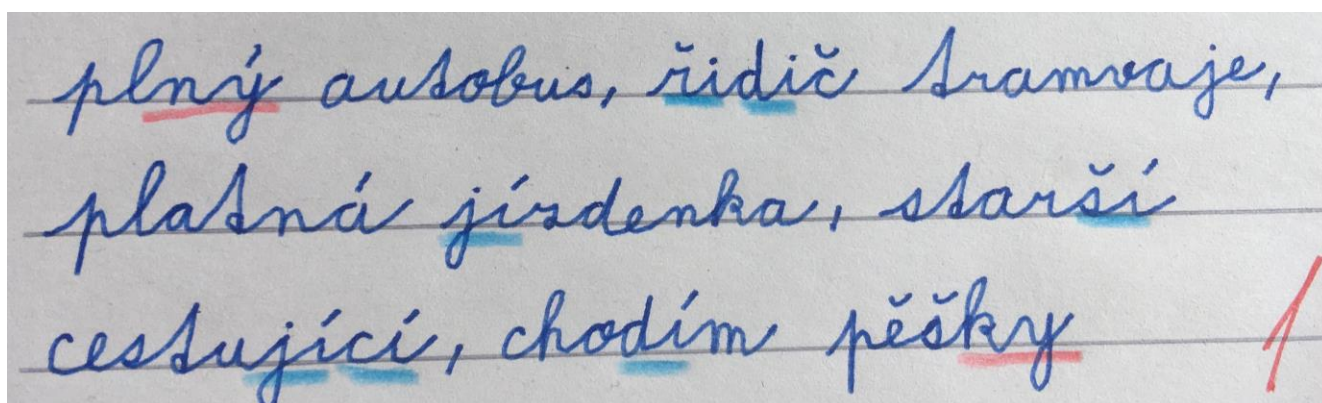 plný autobus, řidič tramvaje,
platná jízdenka, starší
cestující, chodím pěšky
1